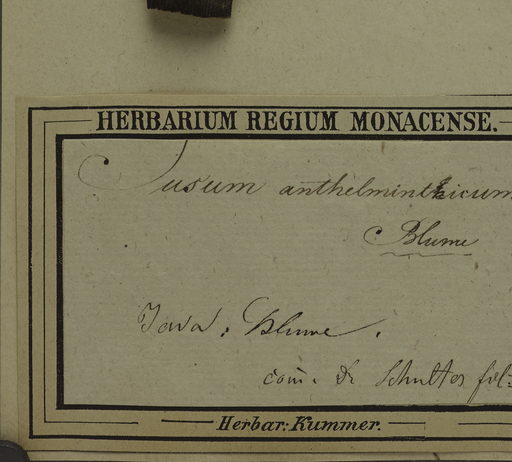 HERBARIUM REGIUM MONACENSE.
Susum anthelminthicum
Blume
Java: Blume.
com. Dr Schultes fil:
Herbar: Kummer.